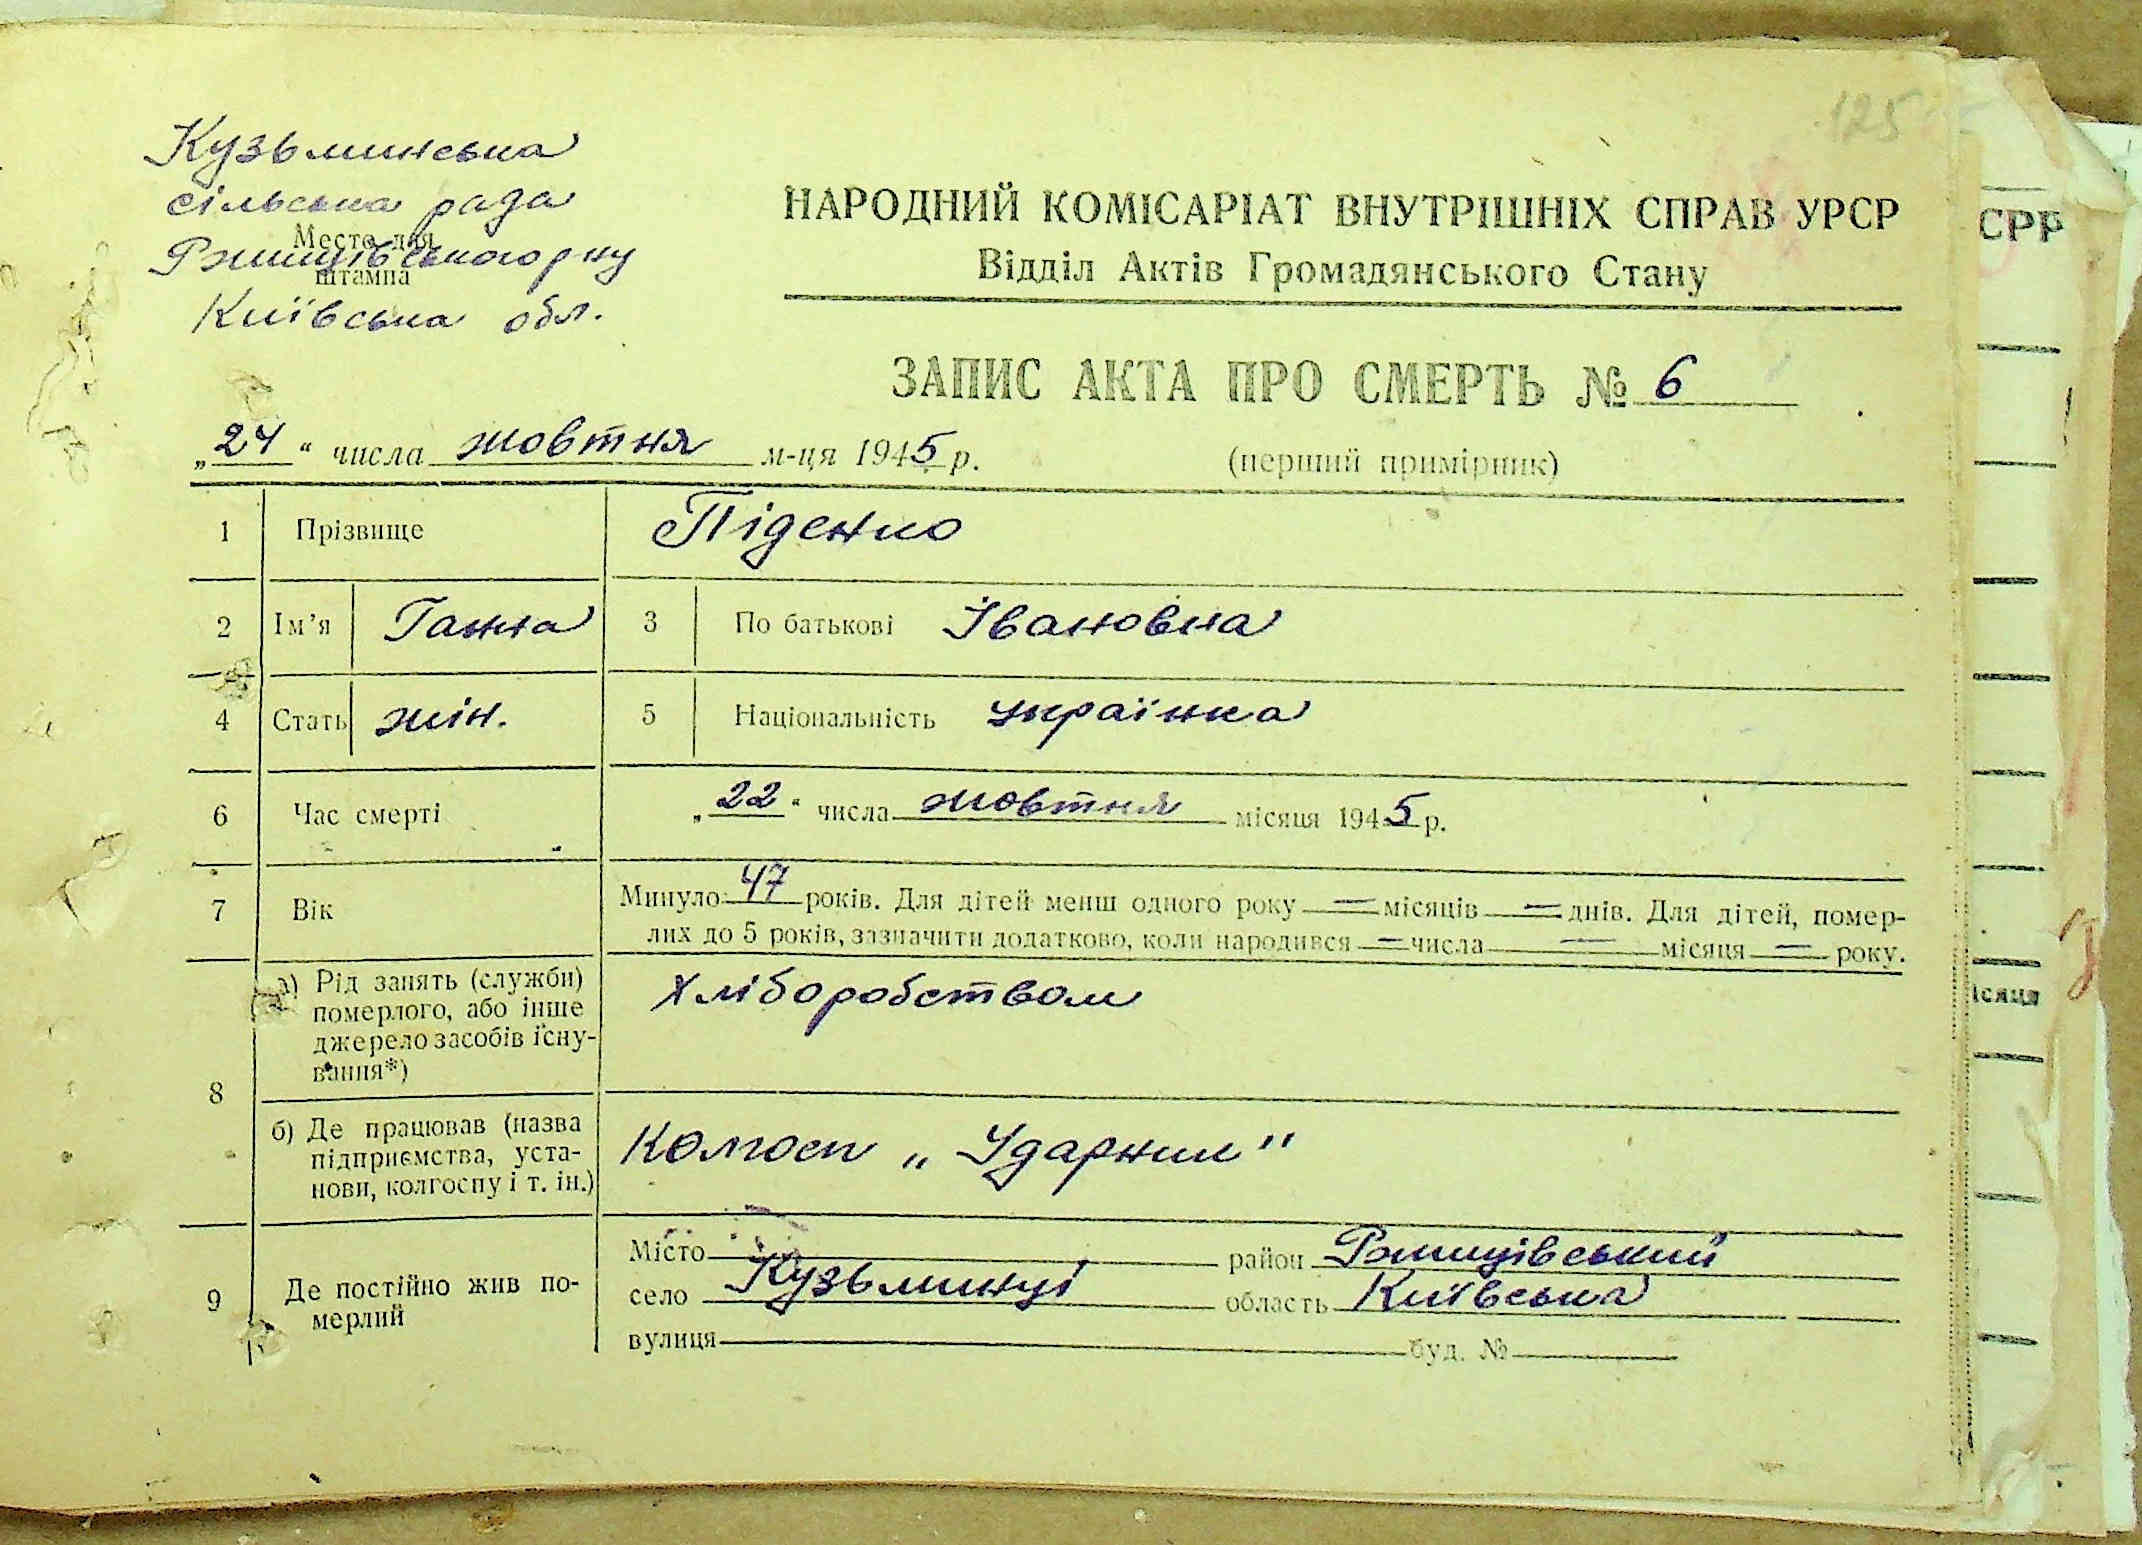 125
Кузьминська
сільська рада
Место для
Ржищівського р-ну
штампа
Київська обл.
НАРОДНИЙ КОМІСАРІАТ ВНУТРІШНІХ СПРАВ УРСР
Відділ Актів Громадянського Стану
ЗАПИС АКТА ПРО СМЕРТЬ № 6
„24“ числа жовтня м-ця 1945 р.
(перший примірник)
1 Прізвище Піденко
2 Ім’я Ганна 3 По батькові Івановна
4 Стать жін. 5 Національність українка
6 Час смерті „22“ числа жовтня місяця 1945 р.
7 Вік Минуло 47 років. Для дітей менш одного року — місяців — днів. Для дітей, помер-
лих до 5 років, зазначити додатково, коли народився — числа — місяця — року.
8 а) Рід занять (служби)
померлого, або інше
джерело засобів існу-
вання*)
Хліборобством
б) Де працював (назва
підприємства, уста-
нови, колгоспу і т. ін.)
Колгосп „Ударник"
9 Де постійно жив по-
мерлий
Місто район Ржищівський
село Кузьминці область Київська
вулиця буд. №
СРР
ісяця